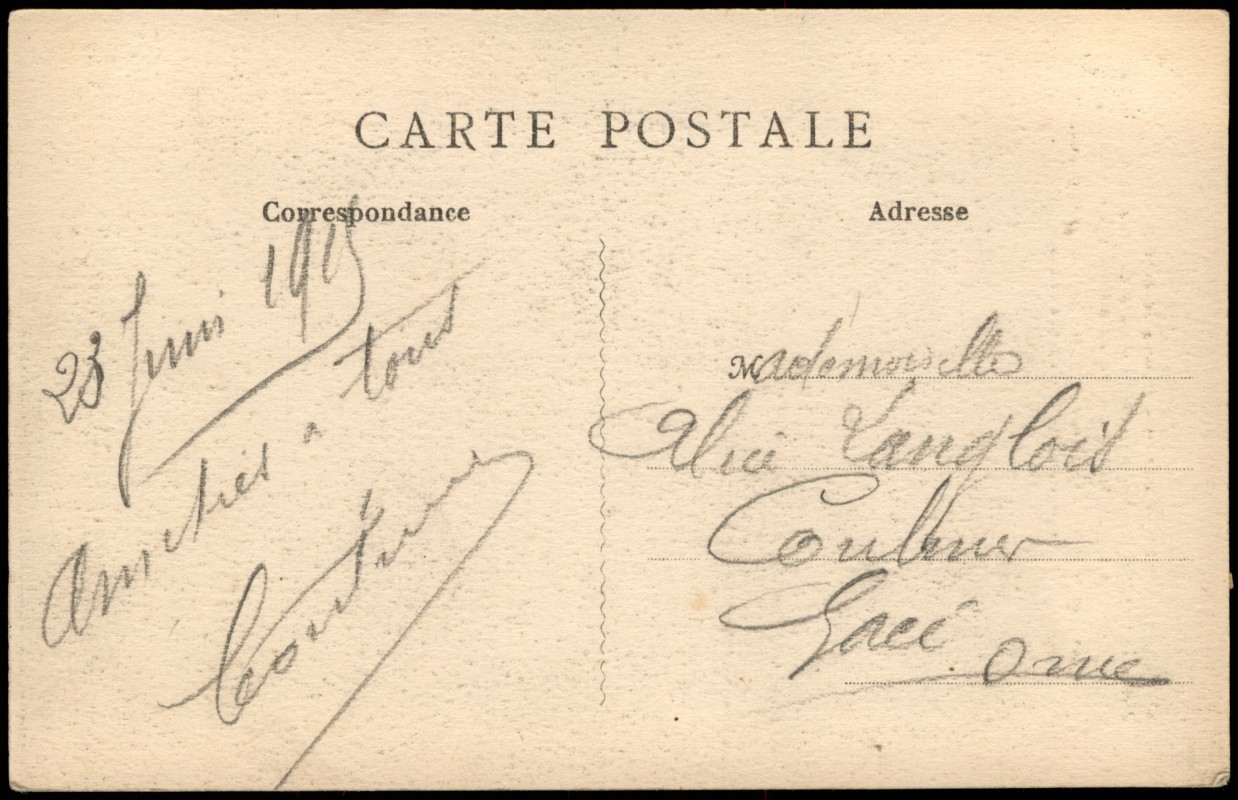 CARTE POSTALE
Correspondance
Adresse
23 Juin 1915
Amitiés à tous
Mademoiselle
Alice Langlois
Coulmer
Gacé
Orne